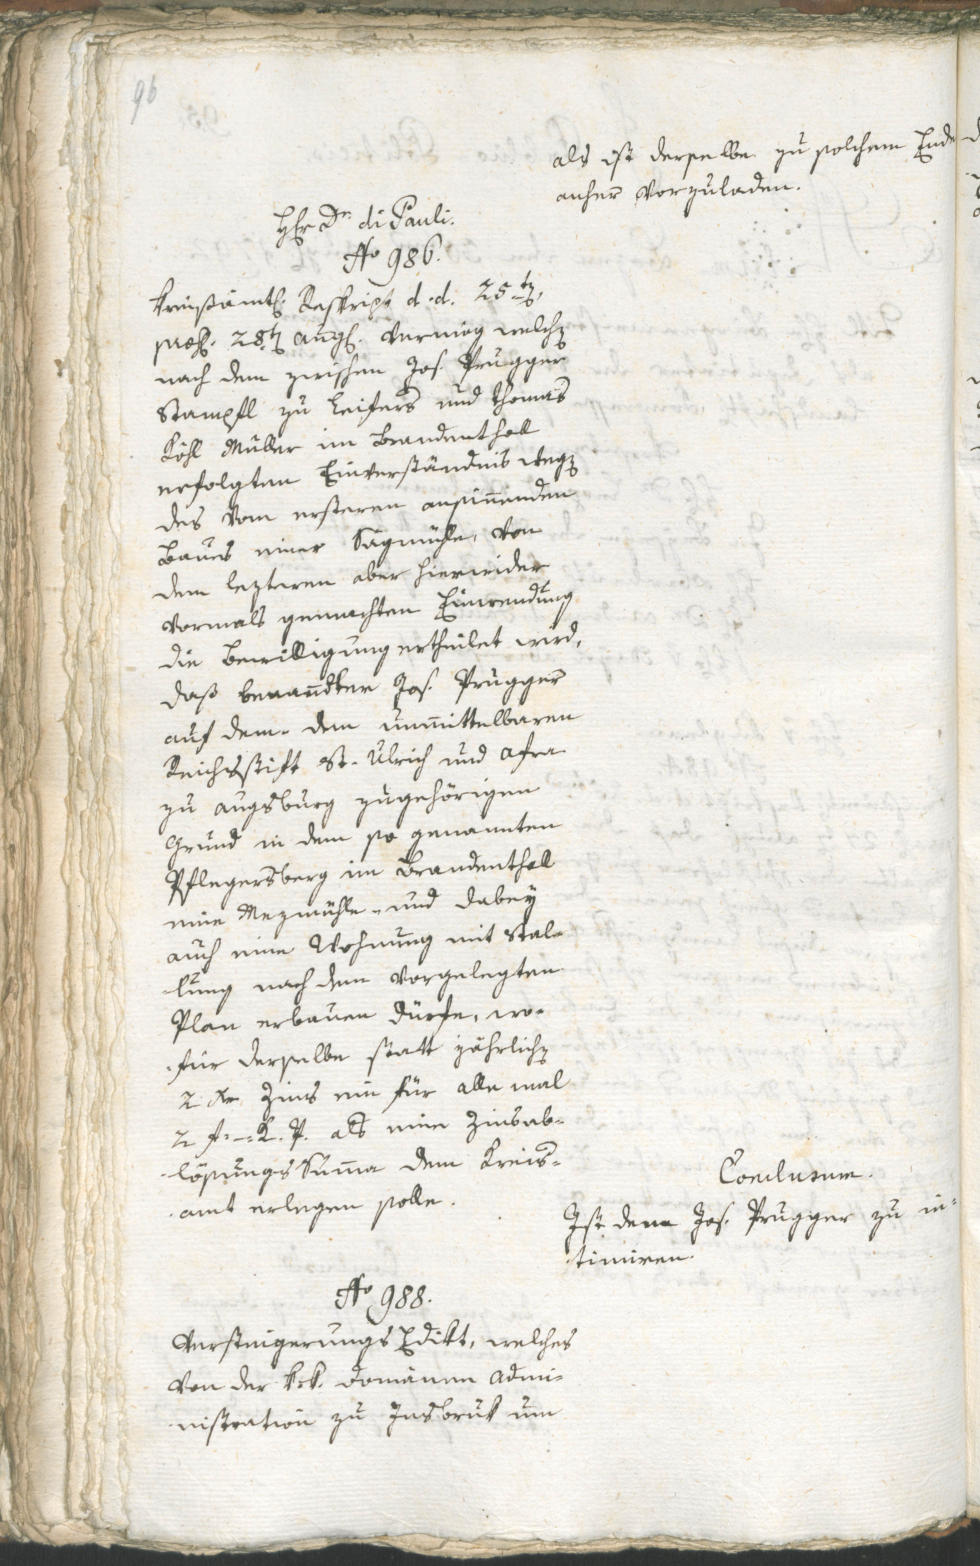 96
als ist derselbe zu solchem Ende
anher vorzuladen.
Hr Dr. di Pauli.
No 986.
Kreisämtl. Reskript d. d. 25t,
praes. 28t Augs. vermög welch
nach dem zwischen Jos. Prugger
Stampfl zu Leifers und Thomas
Köhl Müller im Brandenthall
erfolgten Einverständnis weg
des vom ersteren ansinnenden
Baues einer Sagmühle, von
dem lezteren aber hierwider
vormals gemachten Einwendung
die Bewilligung ertheilet wird,
daß benanndter Jos. Prugger
auf dem- dem unmittelbaren
Reichsstift St. Ulrich und Afra
zu Augsburg zugehörigen
Grund in dem so genannten
Pflegersberg im Brandenthal
eine Mezmühle- und dabey
auch eine Wohnung mit Stal-
lung nach dem vorgelegten
Plan erbauen dürfe, wo-
für derselbe statt jährlich
2 Xr Zins ein für alle mal
2 f. - X. P. als eine Zinsab-
lösungs Summa dem Kreis-
amt erlegen solle.
Conclusum.
Ist dem Jos. Prugger zu in-
timiren.
No 988.
Versteigerungs Edikt, welches
von der k:k. Domänen Admi-
nistration zu Insbruk um